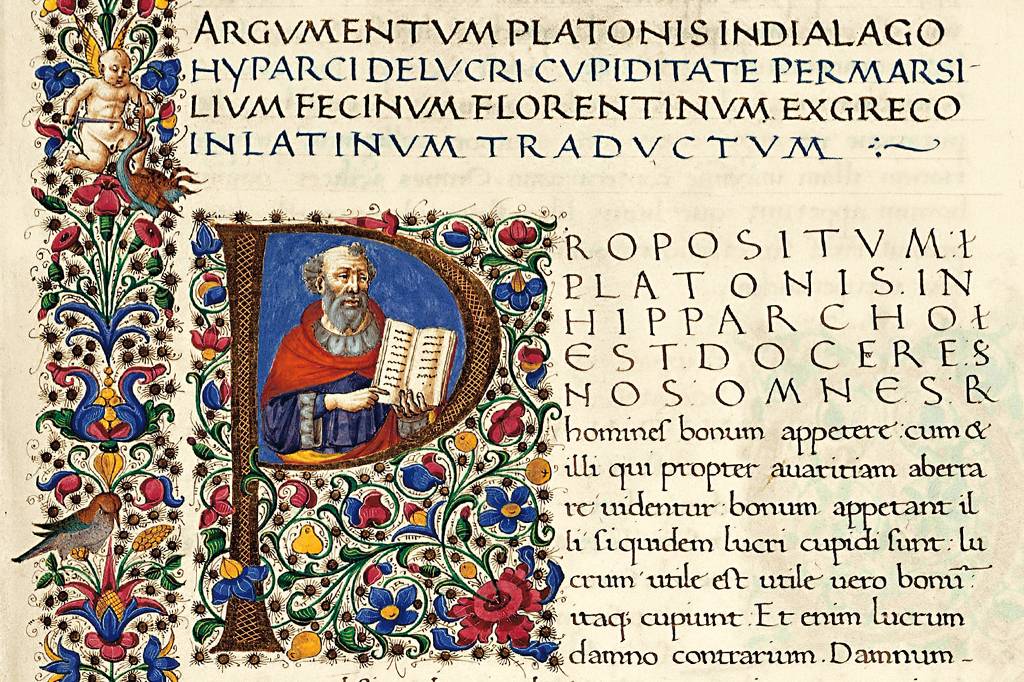 ARGVMENTVM PLATONIS IN DIALAGO
HYPARCI DE LVCRI CVPIDITATE PER MARSI-
LIVM FECINVM FLORENTINVM EX GRECO
IN LATINVM TRADVCTVM
PROPOSITVM:
PLATONIS: IN
HIPPARCHO:
EST DOCERE:
NOS OMNES &
homines bonum appetere: cum &
illi qui propter auaritiam aberra
re uidentur: bonum appetant il
li siquidem lucri cupidi sunt: lu
crum utile est utile uero bonū:
itaq; cupiunt. Et enim lucrum
damno contrarium. Damnum-